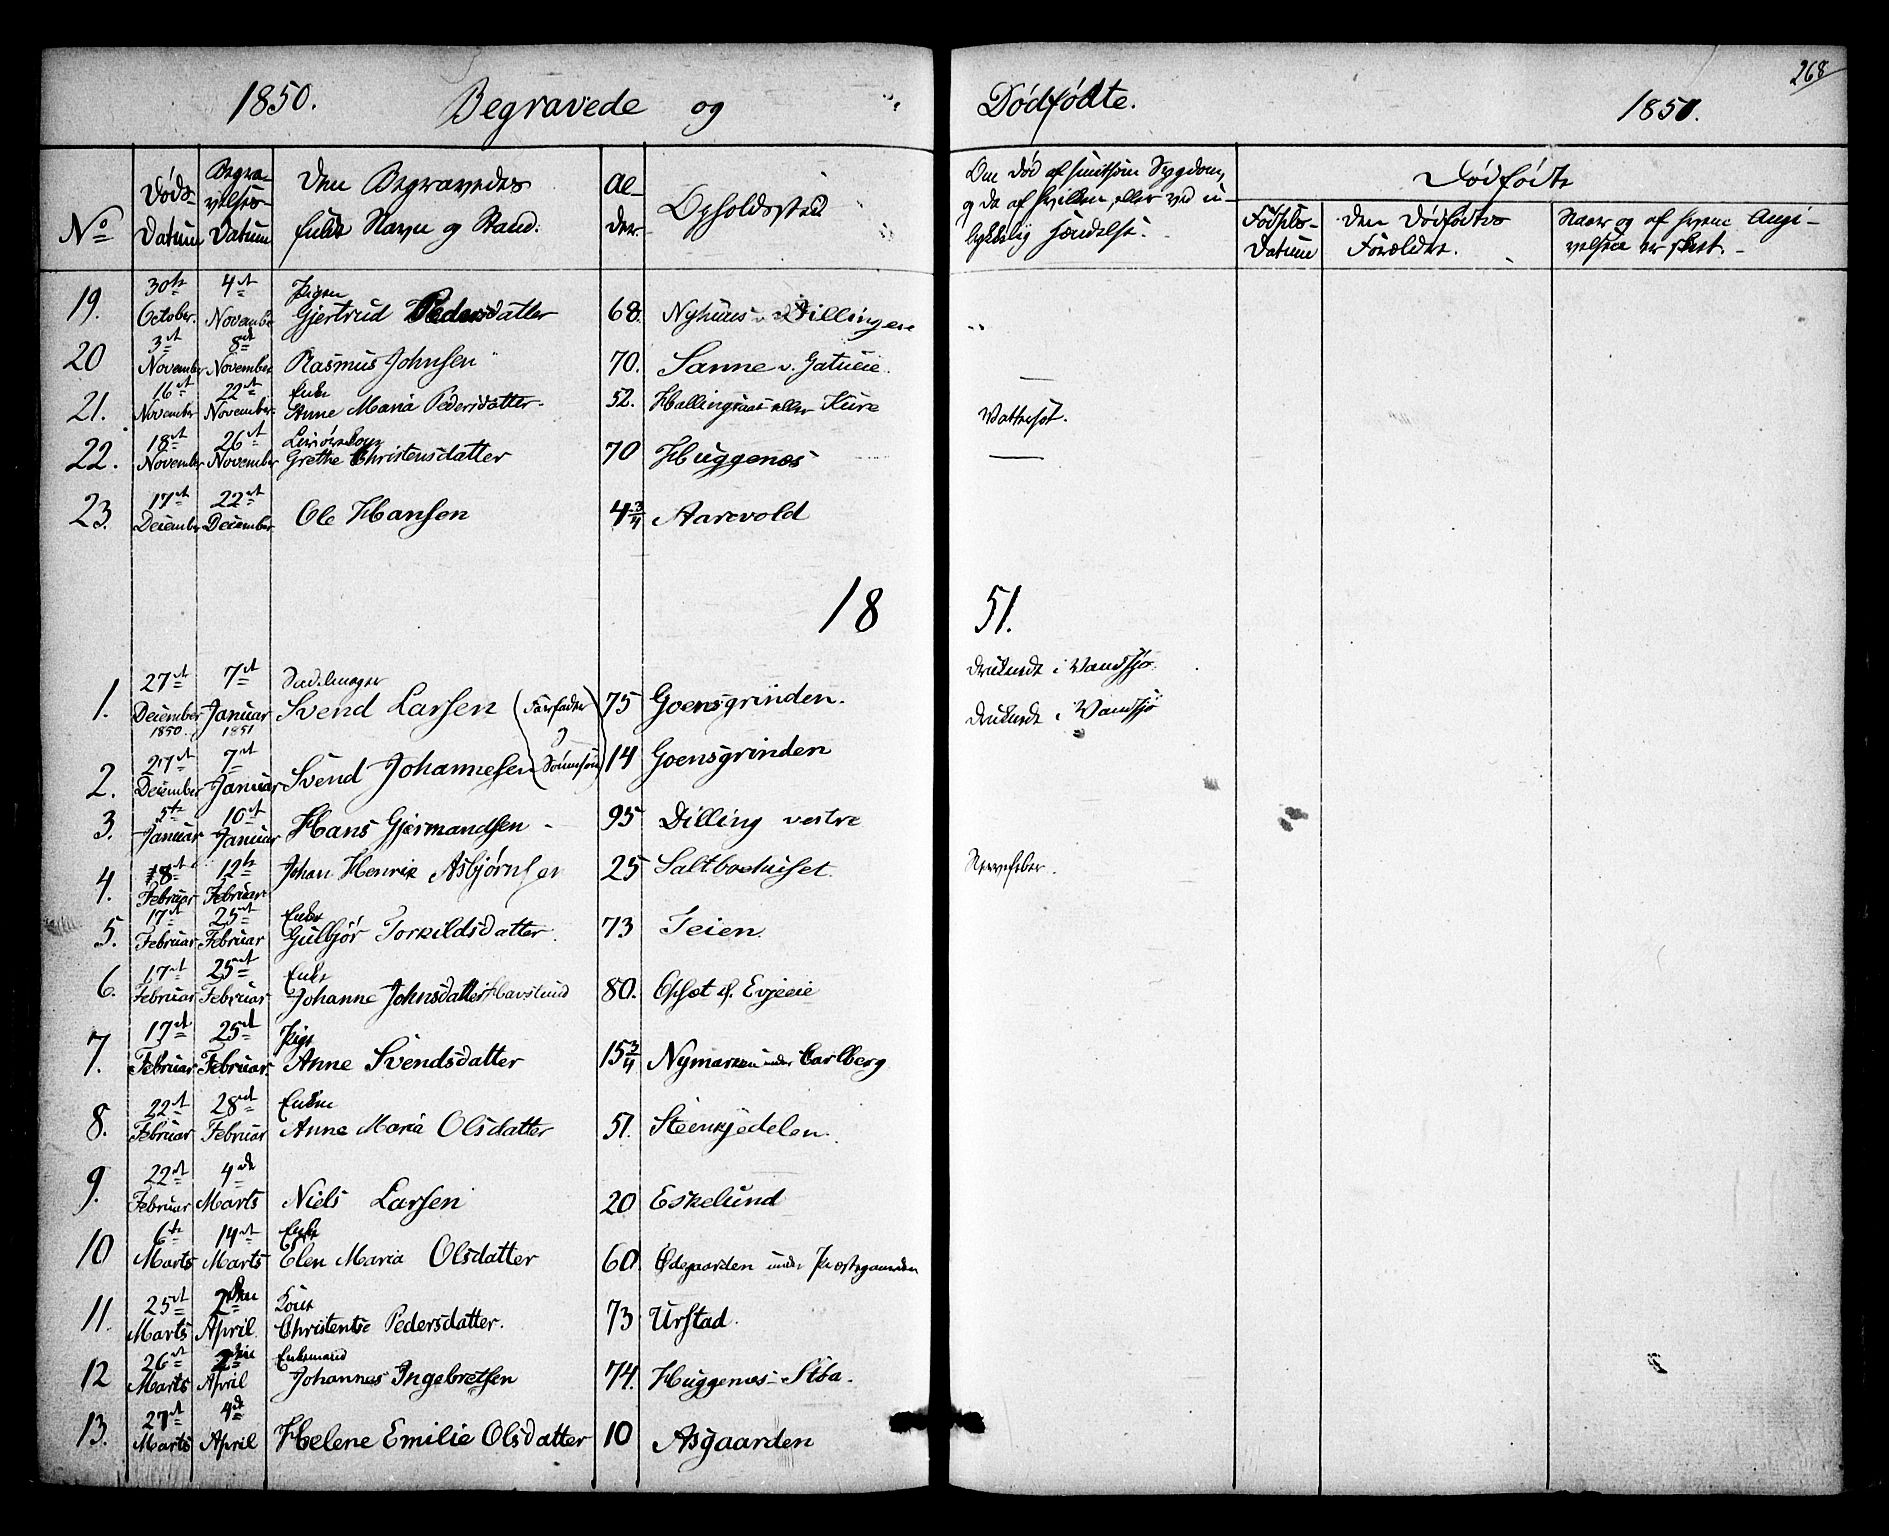 268
1850. Begravede og Dødfødte. 1850.
No
Døds Datum
Begravelses Datum
Den Begravedes fulde Navn og Stand.
Alder
Opholdssted
Om død af smitsom Sygdom, og da af hvilken, eller ved ulykkelig Hændelse.
Dødfødte
Fødsels-Datum
Den Dødfødtes Forældre.
Naar og af hvem Angivelsen er skeet.
19. 30te October. 4de November Pigen Gjertrud Pedersdatter 68. Nyhuus Dillingen "
20 3die November 8de November Rasmus Johnsen 70. Sanne v. —
21. 16de November 22de November. Enke Anne Maria Pedersdatter. 52. eller Kure Vattersot.
22. 18de November 26de November Grethe Christensdatter 70 Huggenæs —
23. 17de December 22de December Ole Hansen 4 3/4 Aarvold
1851.
1. 27de December 1850. 7de Januar 1851 Svend Larsen (Farfader 75 Goensgrinden. druknede i Vandsjø.
og
2. 27de December 7de Januar Svend Johannesen Sønnesøn) 14 Goensgrinden druknede i Vandsjø
3. 5te Januar 10de Januar Hans Gjermandsen - 95 Dilling vestre
4. Februar 12te Februar Johan Henrik Asbjørnsen 25 Saltbodhuset. Nervefeber.
5. 17de Februar 25de Februar Enke Gulbjør Torkildsdatter. 73 Teien.
6. 17de Februar 25de Februar Enke Johanne Johnsdatter Havslund 80. Opsæt
7. 17de Februar 25de Februar. Pige Anne Svendsdatter 15 3/4 Nymarken under Carlberg
8. 22de Februar 28de Februar Anne Maria Olsdatter 51. Steenkjedelen.
9. 22de Februar 4de Marts Niels Larsen 20 Eskelund
10 6te Marts 14de Marts Enke Elen Maria Olsdatter 60 Ødegaarden under Præstegaarden
11. 25de Marts 2den April. Kone Christence Pedersdatter. 73 Urstad.
12 26de Marts 2den April Enkemand Johannes Ingebretsen 74. Huggenæs-Støa.
13. 27de Marts 4de April Helene Emilie Olsdatter 10 Asgaarden